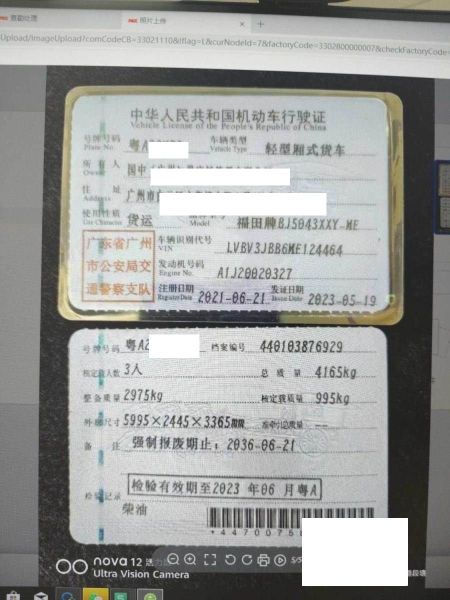 查勘处理
照片上传
Upload/ImageUpload?comCodeCB=33021110&iflag=L&curNodeId=7&factoryCode=3302800000007&checkFactoryCode=
中华人民共和国机动车行驶证
Vehicle License of the People's Republic of China
号牌号码 粤A 车辆类型 轻型厢式货车
Plate No. Vehicle Type
所有人 国中
Owner
住址 广州市
Address
使用性质 货运 福田牌BJ5043XXY-ME
Use Character Model
广东省广州市公安局交通警察支队
车辆识别代号 LVBV3JBB6ME124464
VIN
发动机号码 A1J20020327
Engine No.
注册日期 2021-06-21 发证日期 2023-05-19
Register Date Issue Date
号牌号码 粤A2 档案编号 440103876929
核定载人数 3人 总质量 4165kg
整备质量 2975kg 核定载质量 995kg
外廓尺寸 5995×2445×3365mm 准牵引总质量 --
备注 强制报废期止:2036-06-21
检验有效期至2023年06月粤A
检验记录
柴油
nova 12 活力
Ultra Vision Camera